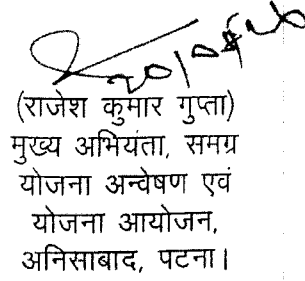 (राजेश कुमार गुप्ता)
मुख्य अभियंता, समग्र
योजना अन्वेषण एवं
योजना आयोजन,
अनिसाबाद, पटना।